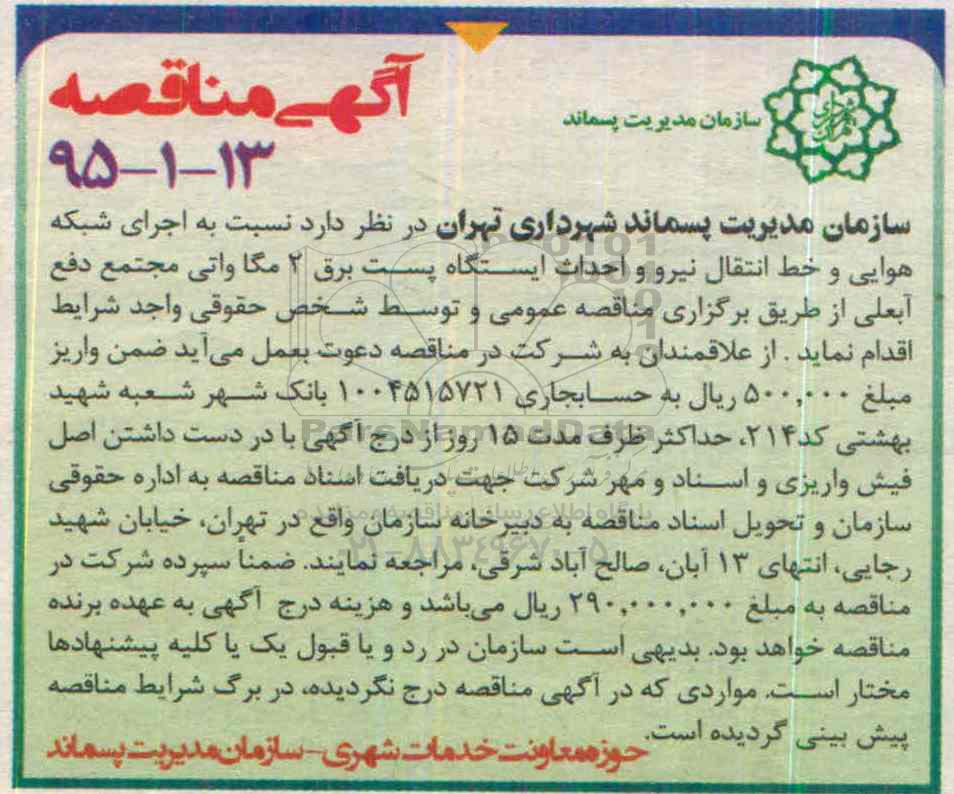 آگهی مناقصه
۹۵-۱-۱۳
شهرداری تهران
سازمان مدیریت پسماند
سازمان مدیریت پسماند شهرداری تهران در نظر دارد نسبت به اجرای شبکه
هوایی و خط انتقال نیرو و احداث ایستگاه پست برق ۲ مگا واتی مجتمع دفع
آبعلی از طریق برگزاری مناقصه عمومی و توسط شخص حقوقی واجد شرایط
اقدام نماید . از علاقمندان به شرکت در مناقصه دعوت بعمل می‌آید ضمن واریز
مبلغ ۵۰۰,۰۰۰ ریال به حسابجاری ۱۰۰۴۵۱۵۷۲۱ بانک شهر شعبه شهید
بهشتی کد۲۱۴، حداکثر ظرف مدت ۱۵ روز از درج آگهی با در دست داشتن اصل
فیش واریزی و اسناد و مهر شرکت جهت دریافت اسناد مناقصه به اداره حقوقی
سازمان و تحویل اسناد مناقصه به دبیرخانه سازمان واقع در تهران، خیابان شهید
رجایی، انتهای ۱۳ آبان، صالح آباد شرقی، مراجعه نمایند. ضمناً سپرده شرکت در
مناقصه به مبلغ ۲۹۰,۰۰۰,۰۰۰ ریال می‌باشد و هزینه درج آگهی به عهده برنده
مناقصه خواهد بود. بدیهی است سازمان در رد و یا قبول یک یا کلیه پیشنهادها
مختار است. مواردی که در آگهی مناقصه درج نگردیده، در برگ شرایط مناقصه
پیش بینی گردیده است.
حوزه معاونت خدمات شهری-سازمان مدیریت پسماند
ParsNamadData
پایگاه اطلاع رسانی مناقصه و مزایده
۰۲۱-۸۸۳۴۹۶۷۰-۵